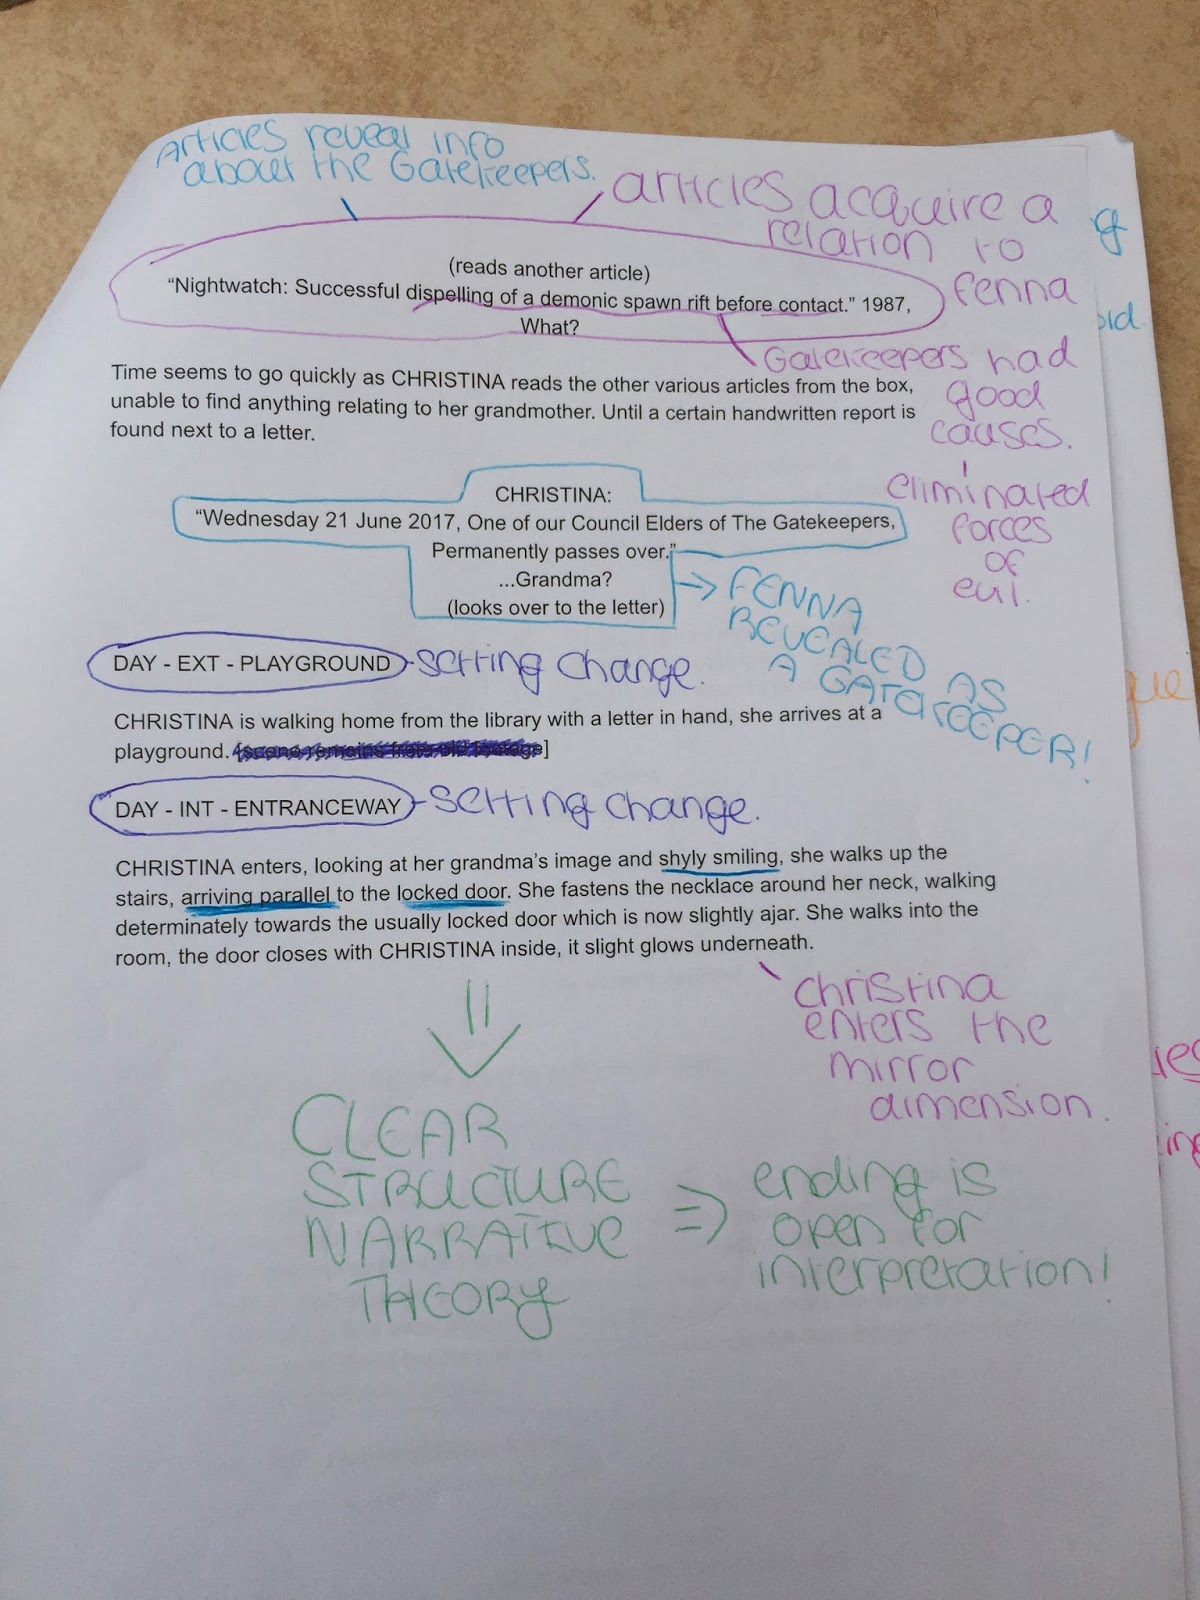 Articles reveal info
about the Gatekeepers.
articles acquire a
relation to
fenna
(reads another article)
“Nightwatch: Successful dispelling of a demonic spawn rift before contact.” 1987,
What?
Gatekeepers had
good
causes.
eliminated
forces
of
evil.
Time seems to go quickly as CHRISTINA reads the other various articles from the box,
unable to find anything relating to her grandmother. Until a certain handwritten report is
found next to a letter.
CHRISTINA:
“Wednesday 21 June 2017, One of our Council Elders of The Gatekeepers,
Permanently passes over.”
...Grandma?
(looks over to the letter)
FENNA
REVEALED AS
A GATEKEEPER!
DAY - EXT - PLAYGROUND - setting change.
CHRISTINA is walking home from the library with a letter in hand, she arrives at a
playground. [scene remains from old footage]
DAY - INT - ENTRANCEWAY - setting change.
CHRISTINA enters, looking at her grandma’s image and shyly smiling, she walks up the
stairs, arriving parallel to the locked door. She fastens the necklace around her neck, walking
determinately towards the usually locked door which is now slightly ajar. She walks into the
room, the door closes with CHRISTINA inside, it slight glows underneath.
Christina
enters the
mirror
dimension.
CLEAR
STRUCTURE
NARRATIVE
THEORY
ending is
open for
interpretation!